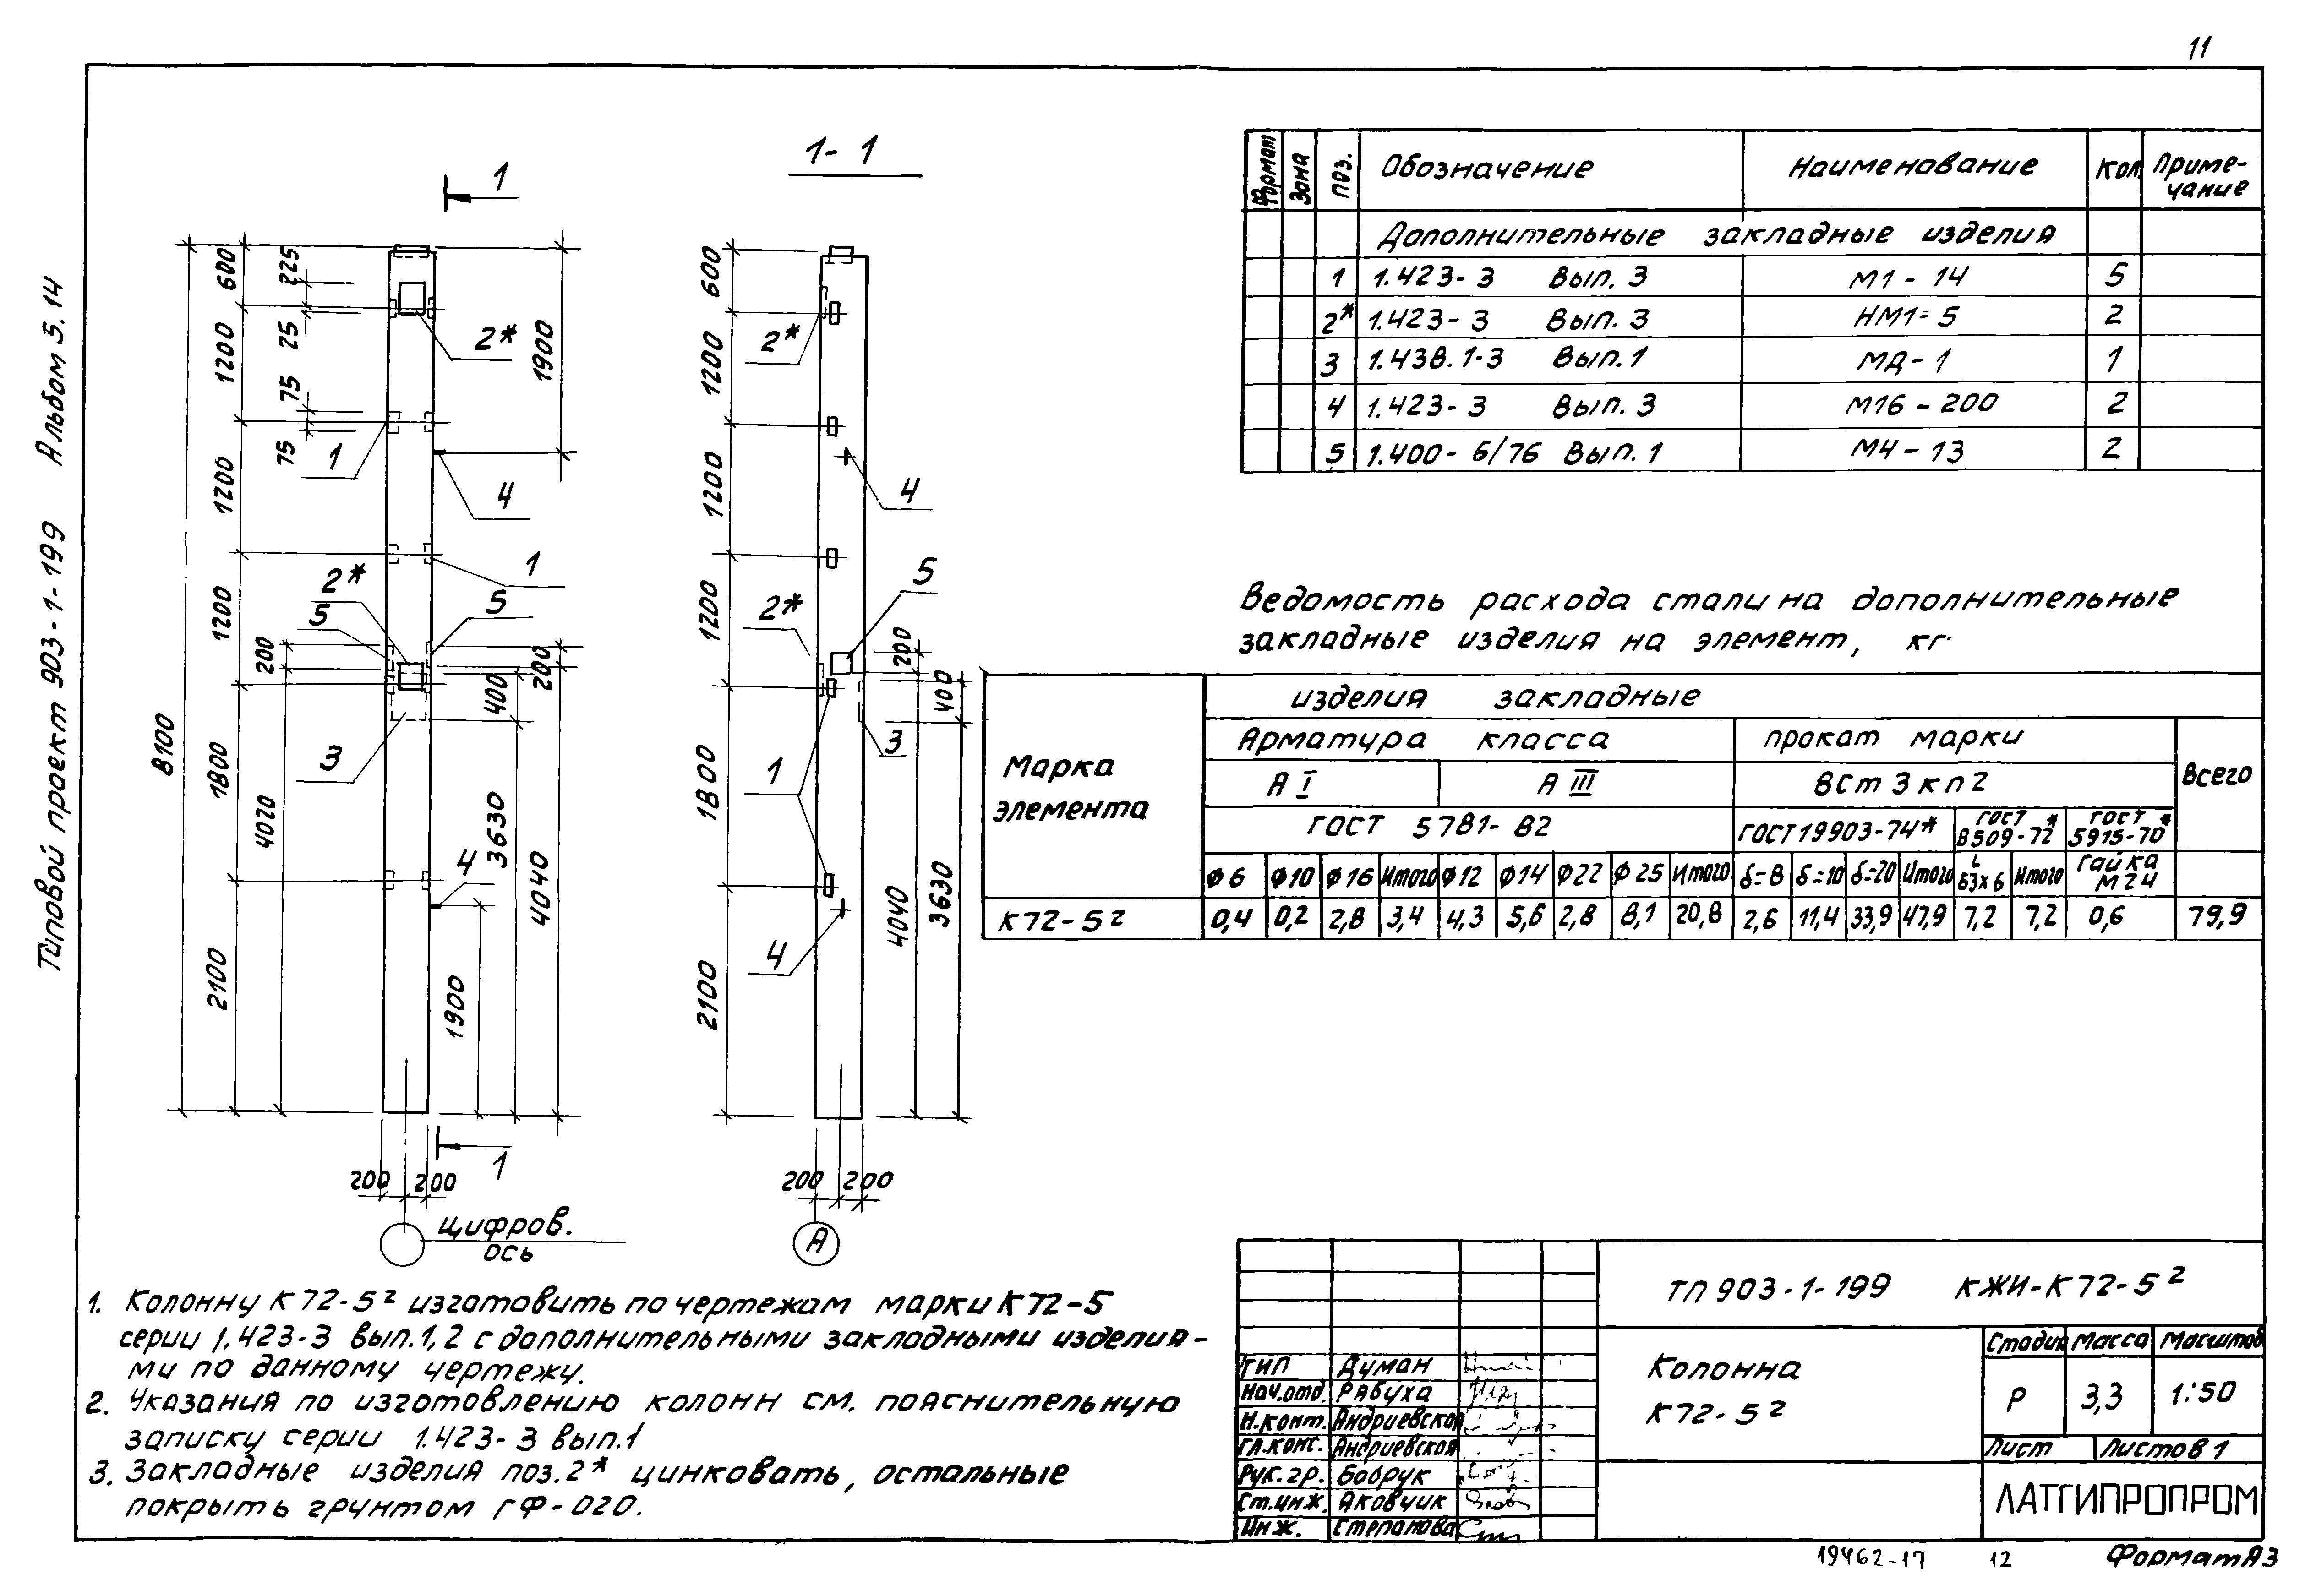 11
Типовой проект 903-1-199 Альбом 5.14
1
1-1
8100
600
1200
1200
1200
1800
2100
225
25
75
75
200
4020
2*
1
4
1
2*
5
5
3
4
1900
200
400
3630
4040
1900
1
200 200
цифров.
ось
600
1200
1200
1200
1800
2100
2*
4
5
2*
200
400
3
1
4
4040
3630
200 200
А
Формат Зона Поз. Обозначение Наименование Кол. Приме-
чание
Дополнительные закладные изделия
1 1.423-3 Вып. 3 М1-14 5
2* 1.423-3 Вып. 3 НМ1-5 2
3 1.438.1-3 Вып. 1 МД-1 1
4 1.423-3 Вып. 3 М16-200 2
5 1.400-6/76 Вып. 1 М4-13 2
Ведомость расхода стали на дополнительные
закладные изделия на элемент, кг.
Марка
элемента
изделия закладные
Арматура класса прокат марки Всего
А I А III ВСт 3 кп 2
ГОСТ 5781-82 ГОСТ 19903-74* ГОСТ 8509-72* ГОСТ 5915-70*
Ф6 Ф10 Ф16 Итого Ф12 Ф14 Ф22 Ф25 Итого δ=8 δ=10 δ=20 Итого L 63х6 Итого Гайка М24
К72-5² 0,4 0,2 2,8 3,4 4,3 5,6 2,8 8,1 20,8 2,6 11,4 33,9 47,9 7,2 7,2 0,6 79,9
1. Колонну К72-5² изготовить по чертежам марки К72-5
серии 1.423-3 вып.1,2 с дополнительными закладными изделия-
ми по данному чертежу.
2. Указания по изготовлению колонн см. пояснительную
записку серии 1.423-3 вып.1
3. Закладные изделия поз.2* цинковать, остальные
покрыть грунтом ГФ-020.
ТП 903-1-199 КЖИ-К72-5²
Колонна
К72-5²
Стадия Масса Масштаб
Р 3,3 1:50
Лист Листов 1
ЛАТГИПРОПРОМ
ГИП Думан
Нач.отд. Рябуха
Н.конт. Андриевская
Гл.конс. Андриевская
Рук.гр. Бобрук
Ст.инж. Яковчик
Инж. Степанова
19462-17 12 Формат А3